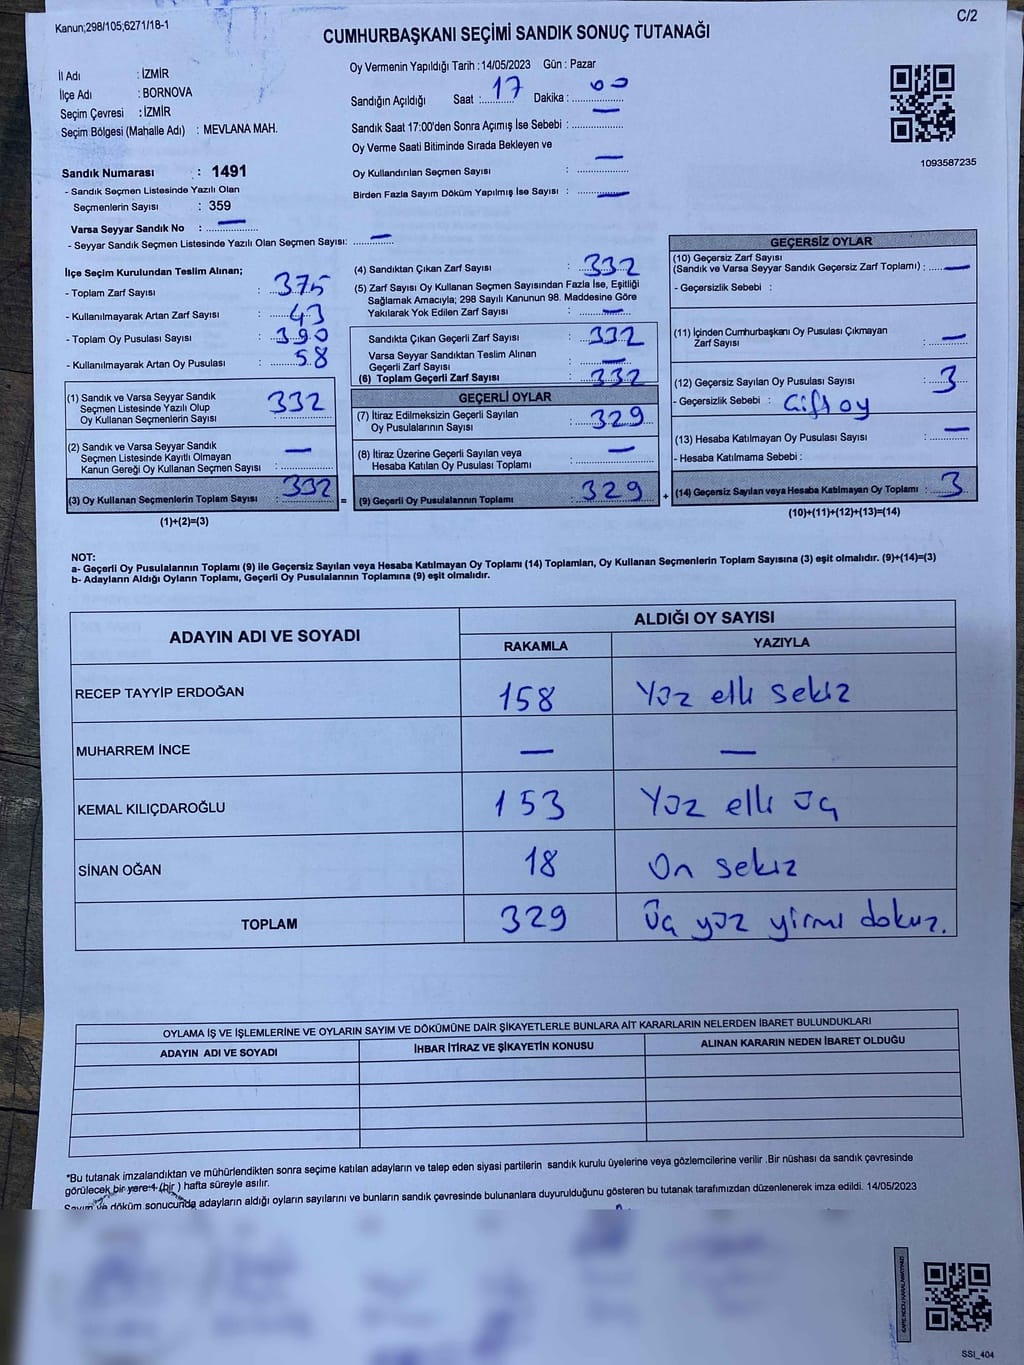 Kanun;298/105;6271/18-1
C/2
CUMHURBAŞKANI SEÇİMİ SANDIK SONUÇ TUTANAĞI
İl Adı : İZMİR
İlçe Adı : BORNOVA
Seçim Çevresi : İZMİR
Seçim Bölgesi (Mahalle Adı) : MEVLANA MAH.
Oy Vermenin Yapıldığı Tarih : 14/05/2023 Gün : Pazar
Sandığın Açıldığı Saat : 17 Dakika : 00
Sandık Saat 17:00'den Sonra Açımış İse Sebebi : —
Oy Verme Saati Bitiminde Sırada Bekleyen ve
Oy Kullandırılan Seçmen Sayısı : —
Birden Fazla Sayım Döküm Yapılmış İse Sayısı : —
1093587235
Sandık Numarası : 1491
- Sandık Seçmen Listesinde Yazılı Olan
Seçmenlerin Sayısı : 359
Varsa Seyyar Sandık No : —
- Seyyar Sandık Seçmen Listesinde Yazılı Olan Seçmen Sayısı: —
İlçe Seçim Kurulundan Teslim Alınan;
- Toplam Zarf Sayısı : 375
- Kullanılmayarak Artan Zarf Sayısı : 43
- Toplam Oy Pusulası Sayısı : 390
- Kullanılmayarak Artan Oy Pusulası : 58
(1) Sandık ve Varsa Seyyar Sandık
Seçmen Listesinde Yazılı Olup
Oy Kullanan Seçmenlerin Sayısı : 332
(2) Sandık ve Varsa Seyyar Sandık
Seçmen Listesinde Kayıtlı Olmayan
Kanun Gereği Oy Kullanan Seçmen Sayısı : —
(3) Oy Kullanan Seçmenlerin Toplam Sayısı : 332
(1)+(2)=(3)
=
(4) Sandıktan Çıkan Zarf Sayısı : 332
(5) Zarf Sayısı Oy Kullanan Seçmen Sayısından Fazla İse, Eşitliği
Sağlamak Amacıyla; 298 Sayılı Kanunun 98. Maddesine Göre
Yakılarak Yok Edilen Zarf Sayısı : —
Sandıkta Çıkan Geçerli Zarf Sayısı : 332
Varsa Seyyar Sandıktan Teslim Alınan
Geçerli Zarf Sayısı : —
(6) Toplam Geçerli Zarf Sayısı : 332
GEÇERLİ OYLAR
(7) İtiraz Edilmeksizin Geçerli Sayılan
Oy Pusulalarının Sayısı : 329
(8) İtiraz Üzerine Geçerli Sayılan veya
Hesaba Katılan Oy Pusulası Toplamı : —
(9) Geçerli Oy Pusulalarının Toplamı : 329
+
GEÇERSİZ OYLAR
(10) Geçersiz Zarf Sayısı
(Sandık ve Varsa Seyyar Sandık Geçersiz Zarf Toplamı) : —
- Geçersizlik Sebebi :
(11) İçinden Cumhurbaşkanı Oy Pusulası Çıkmayan
Zarf Sayısı : —
(12) Geçersiz Sayılan Oy Pusulası Sayısı : 3
- Geçersizlik Sebebi : Çift oy
(13) Hesaba Katılmayan Oy Pusulası Sayısı : —
- Hesaba Katılmama Sebebi :
(14) Geçersiz Sayılan veya Hesaba Katılmayan Oy Toplamı : 3
(10)+(11)+(12)+(13)=(14)
NOT:
a- Geçerli Oy Pusulalarının Toplamı (9) ile Geçersiz Sayılan veya Hesaba Katılmayan Oy Toplamı (14) Toplamları, Oy Kullanan Seçmenlerin Toplam Sayısına (3) eşit olmalıdır. (9)+(14)=(3)
b- Adayların Aldığı Oyların Toplamı, Geçerli Oy Pusulalarının Toplamına (9) eşit olmalıdır.
ADAYIN ADI VE SOYADI ALDIĞI OY SAYISI
RAKAMLA YAZIYLA
RECEP TAYYİP ERDOĞAN 158 Yüz ellı sekız
MUHARREM İNCE — —
KEMAL KILIÇDAROĞLU 153 Yüz ellı üç
SİNAN OĞAN 18 On sekız
TOPLAM 329 Üç yüz yirmı dokuz.
OYLAMA İŞ VE İŞLEMLERİNE VE OYLARIN SAYIM VE DÖKÜMÜNE DAİR ŞİKAYETLERLE BUNLARA AİT KARARLARIN NELERDEN İBARET BULUNDUKLARI
ADAYIN ADI VE SOYADI İHBAR İTİRAZ VE ŞİKAYETİN KONUSU ALINAN KARARIN NEDEN İBARET OLDUĞU
*Bu tutanak imzalandıktan ve mühürlendikten sonra seçime katılan adayların ve talep eden siyasi partilerin sandık kurulu üyelerine veya gözlemcilerine verilir .Bir nüshası da sandık çevresinde
görülecek bir yere 1 (bir ) hafta süreyle asılır.
Sayım ve döküm sonucunda adayların aldığı oyların sayılarını ve bunların sandık çevresinde bulunanlara duyurulduğunu gösteren bu tutanak tarafımızdan düzenlenerek imza edildi. 14/05/2023
SSI_404